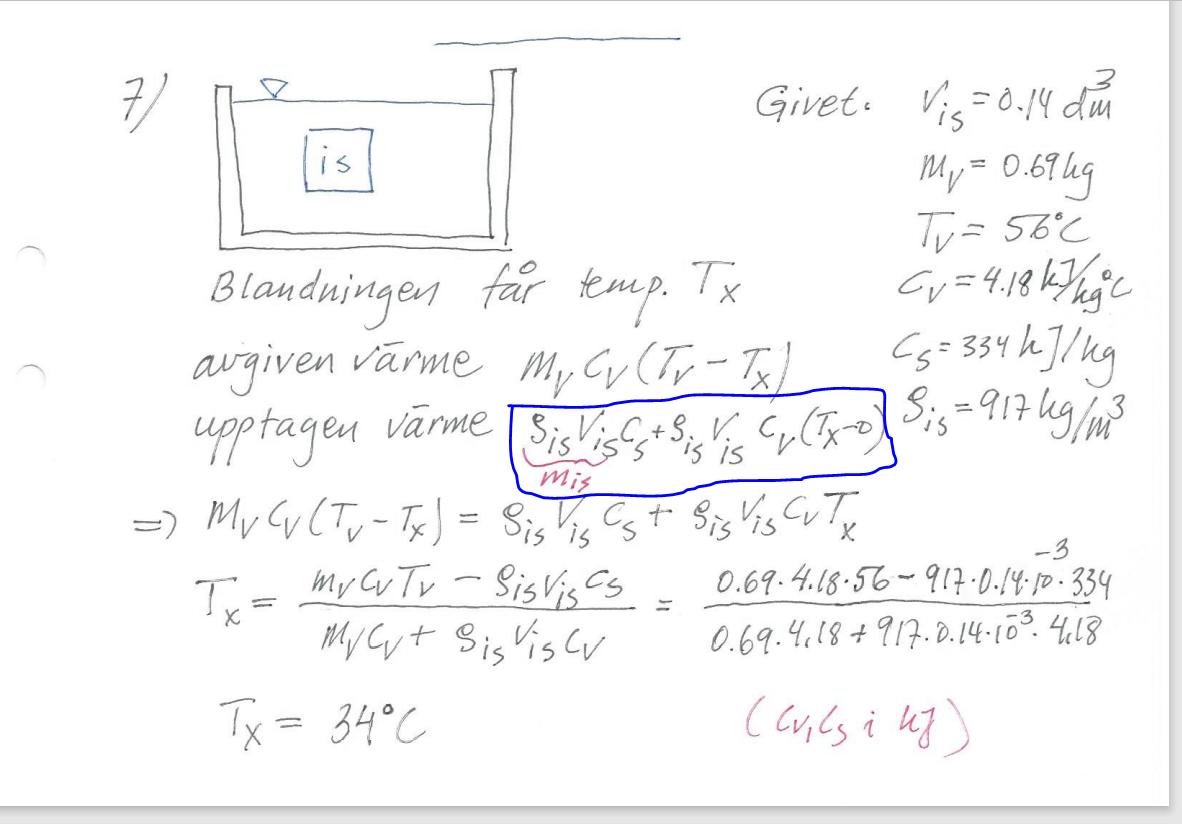 7)
is
Givet: V_is = 0.14 dm³
m_v = 0.69 kg
T_v = 56°C
C_v = 4.18 kJ/kg°C
C_s = 334 kJ/kg
ρ_is = 917 kg/m³
Blandningen får temp. T_x
avgiven värme m_v C_v (T_v - T_x)
upptagen värme ρ_is V_is C_s + ρ_is V_is C_v (T_x - 0)
m_is
=> m_v C_v (T_v - T_x) = ρ_is V_is C_s + ρ_is V_is C_v T_x
T_x = (m_v C_v T_v - ρ_is V_is C_s) / (m_v C_v + ρ_is V_is C_v) = (0.69 · 4.18 · 56 - 917 · 0.14 · 10⁻³ · 334) / (0.69 · 4.18 + 917 · 0.14 · 10⁻³ · 4.18)
T_x = 34°C
(C_v, C_s i kJ)